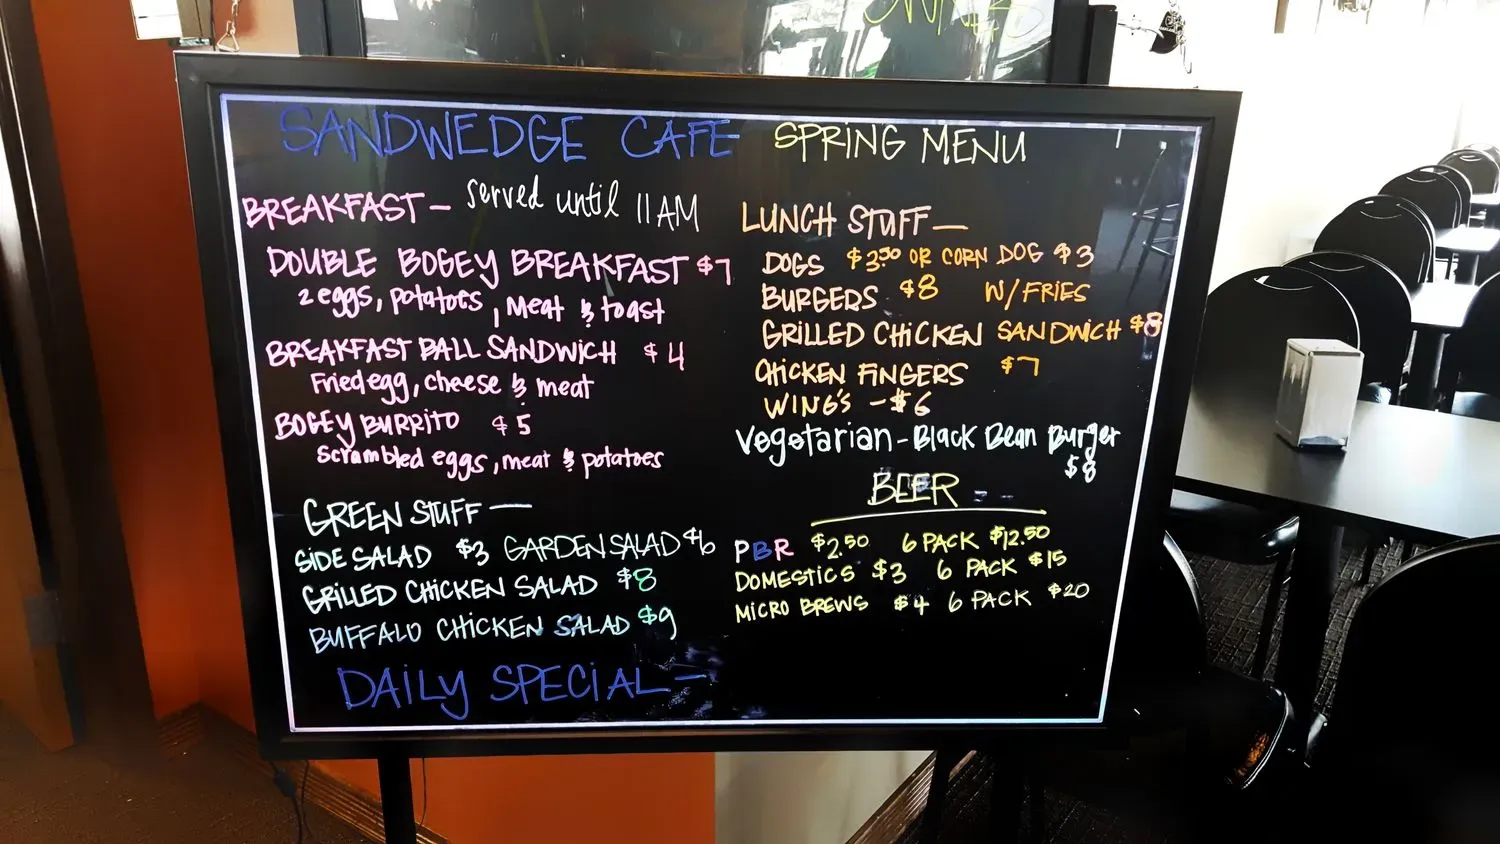 SANDWEDGE CAFE SPRING MENU
BREAKFAST – served until 11AM
DOUBLE BOGEY BREAKFAST $7
2 eggs, potatoes, meat & toast
BREAKFAST BALL SANDWICH $4
Fried egg, cheese & meat
BOGEY BURRITO $5
Scrambled eggs, meat & potatoes
GREEN STUFF —
SIDE SALAD $3 GARDEN SALAD $6
GRILLED CHICKEN SALAD $8
BUFFALO CHICKEN SALAD $9
DAILY SPECIAL –
LUNCH STUFF —
DOGS $3.50 OR CORN DOG $3
BURGERS $8 W/ FRIES
GRILLED CHICKEN SANDWICH $8
CHICKEN FINGERS $7
WING'S – $6
Vegetarian – Black Bean Burger
$8
BEER
PBR $2.50 6 PACK $12.50
DOMESTICS $3 6 PACK $15
MICRO BREWS $4 6 PACK $20